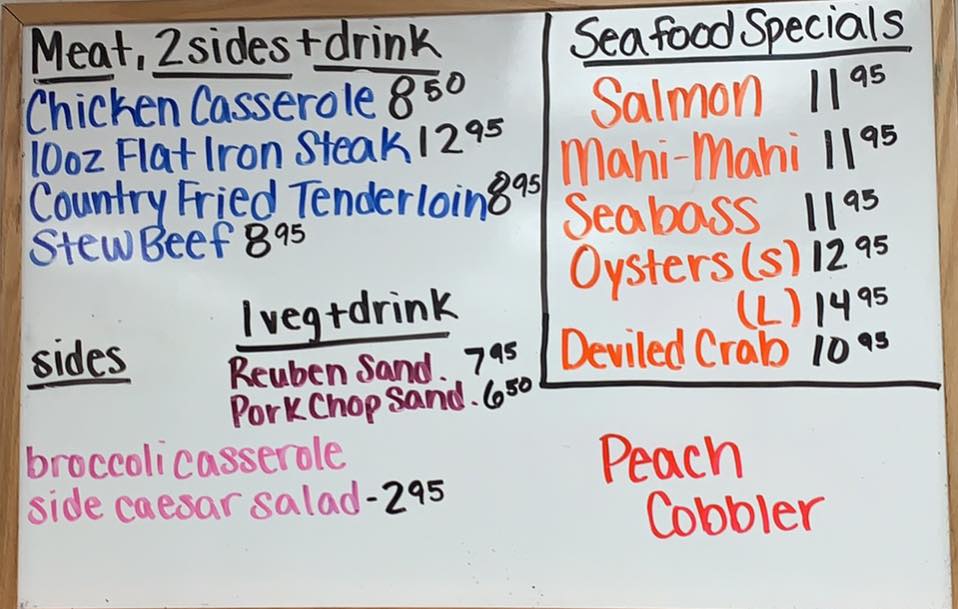 Meat, 2sides + drink
Chicken Casserole 8 50
10oz Flat Iron Steak 12 95
Country Fried Tenderloin 8 95
Stew Beef 8 95
1 veg + drink
Reuben Sand. 7 95
Pork Chop Sand. 6 50
sides
broccoli casserole
side caesar salad - 2 95
Seafood Specials
Salmon 11 95
Mahi-Mahi 11 95
Seabass 11 95
Oysters (s) 12 95
(L) 14 95
Deviled Crab 10 95
Peach
Cobbler